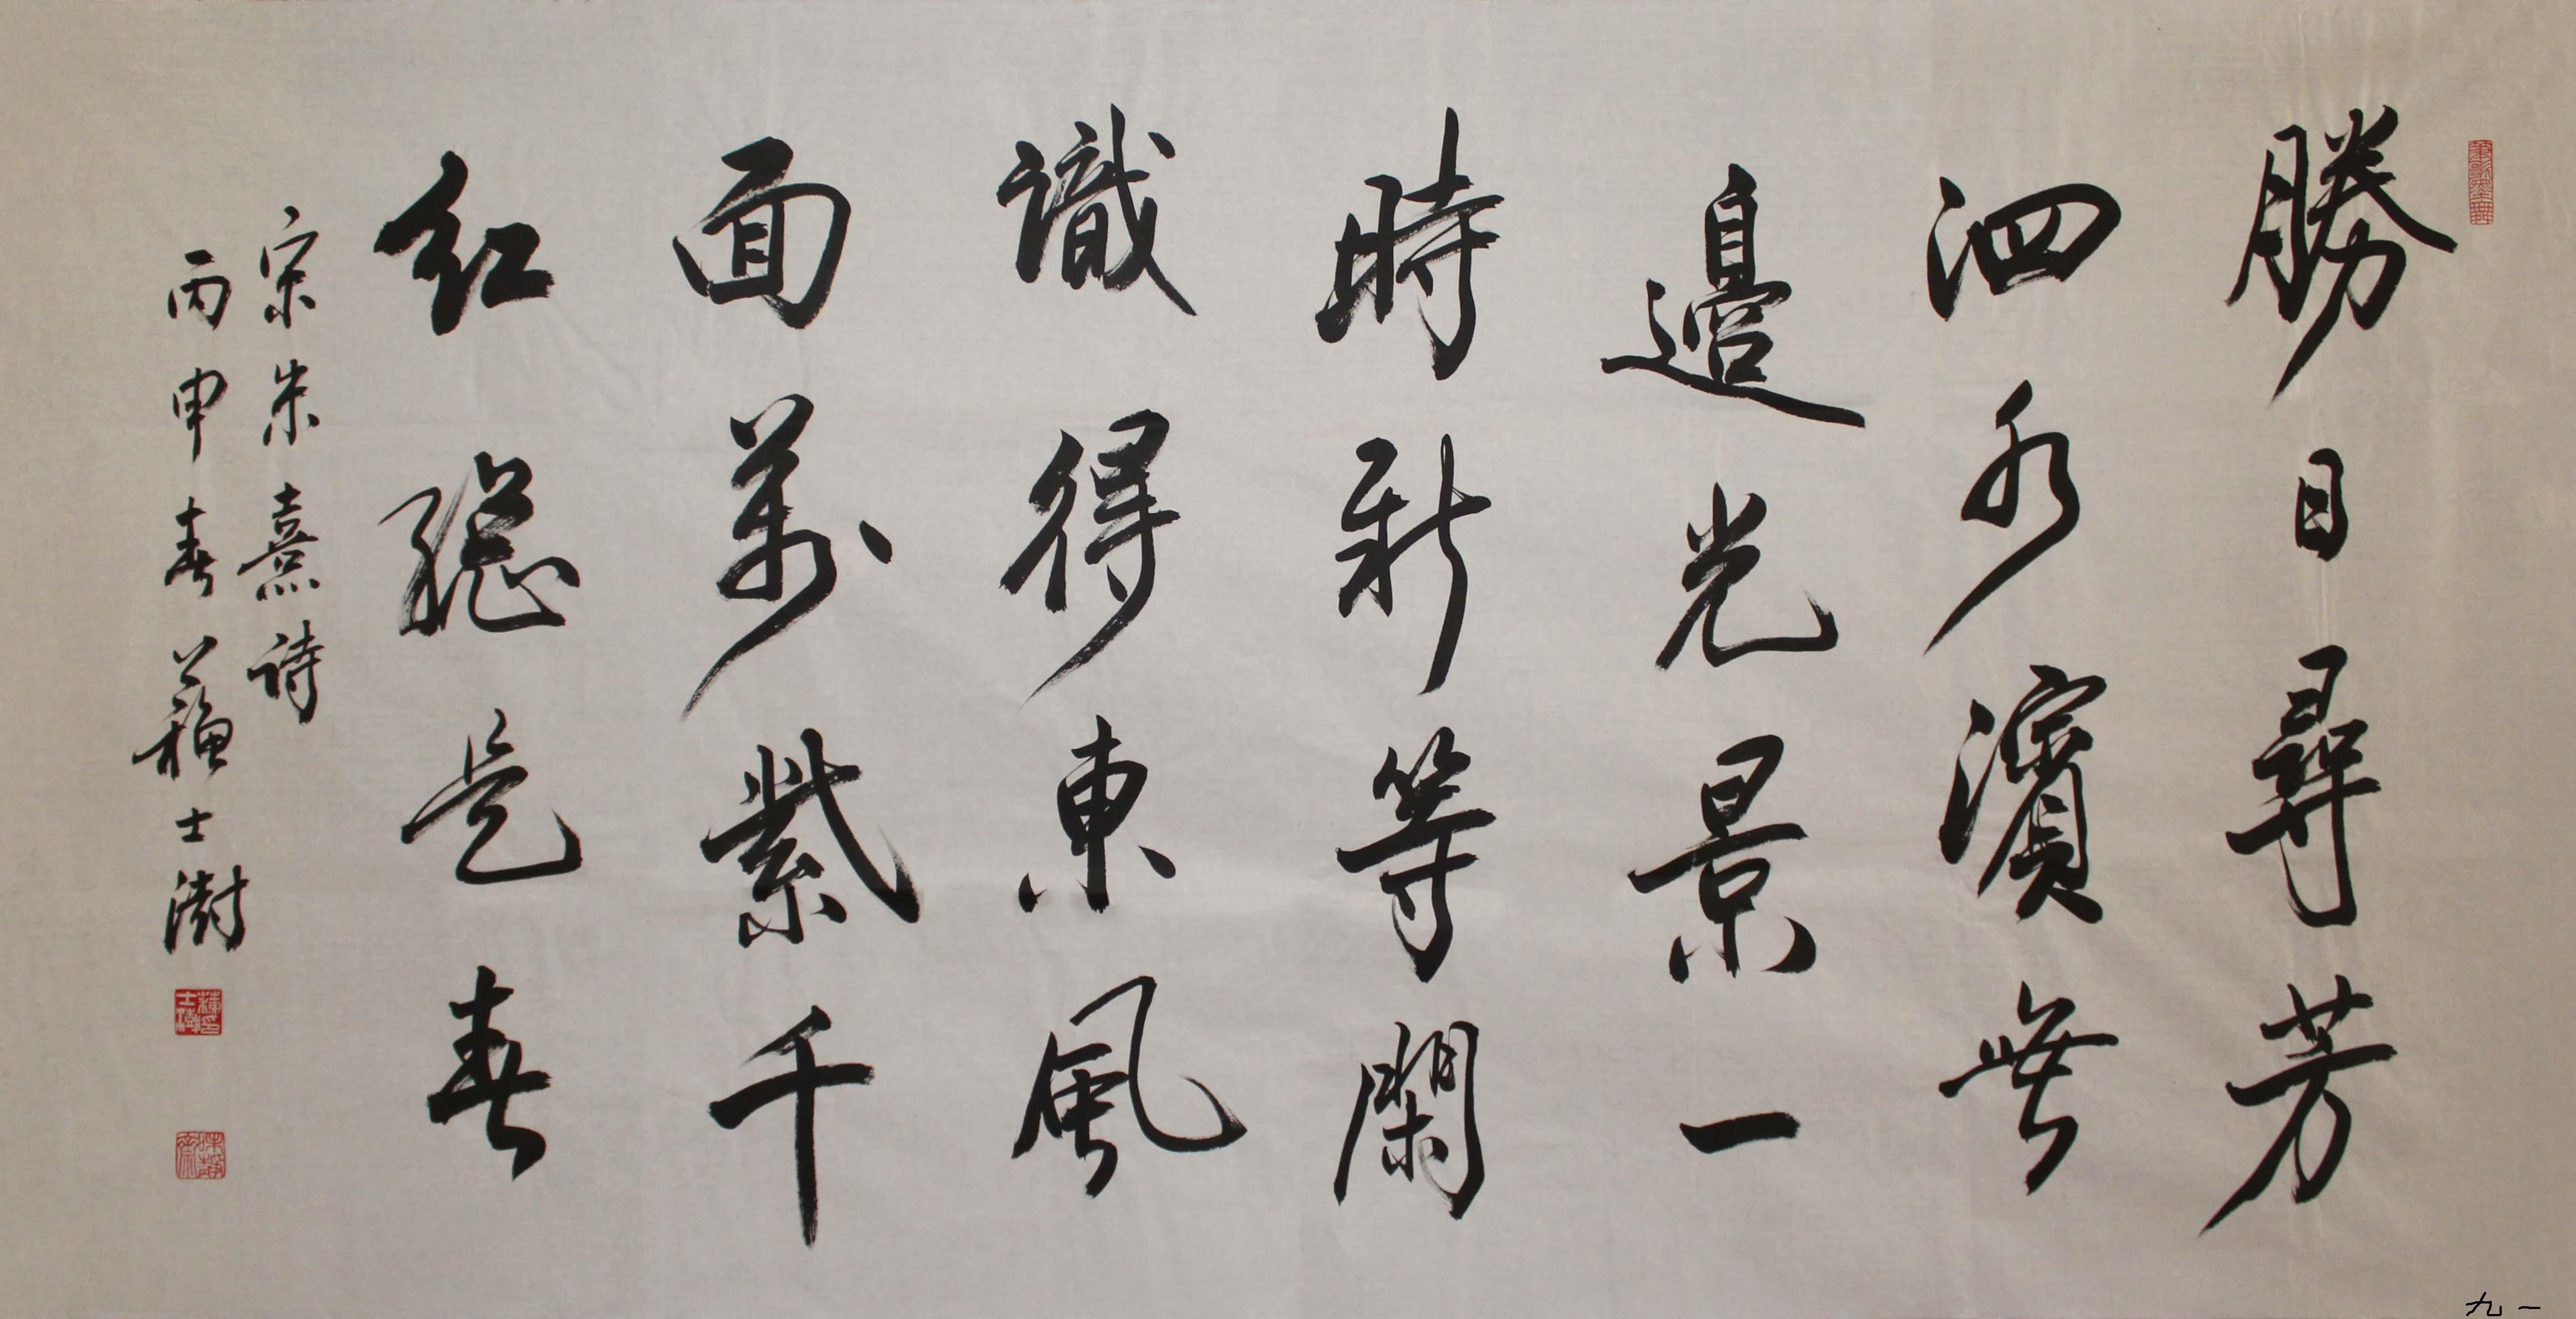 勝日尋芳
泗水濱無
邊光景一
時新等閑
識得東風
面萬紫千
红總是春
宋朱熹诗
丙申春 蘇士澍
九一